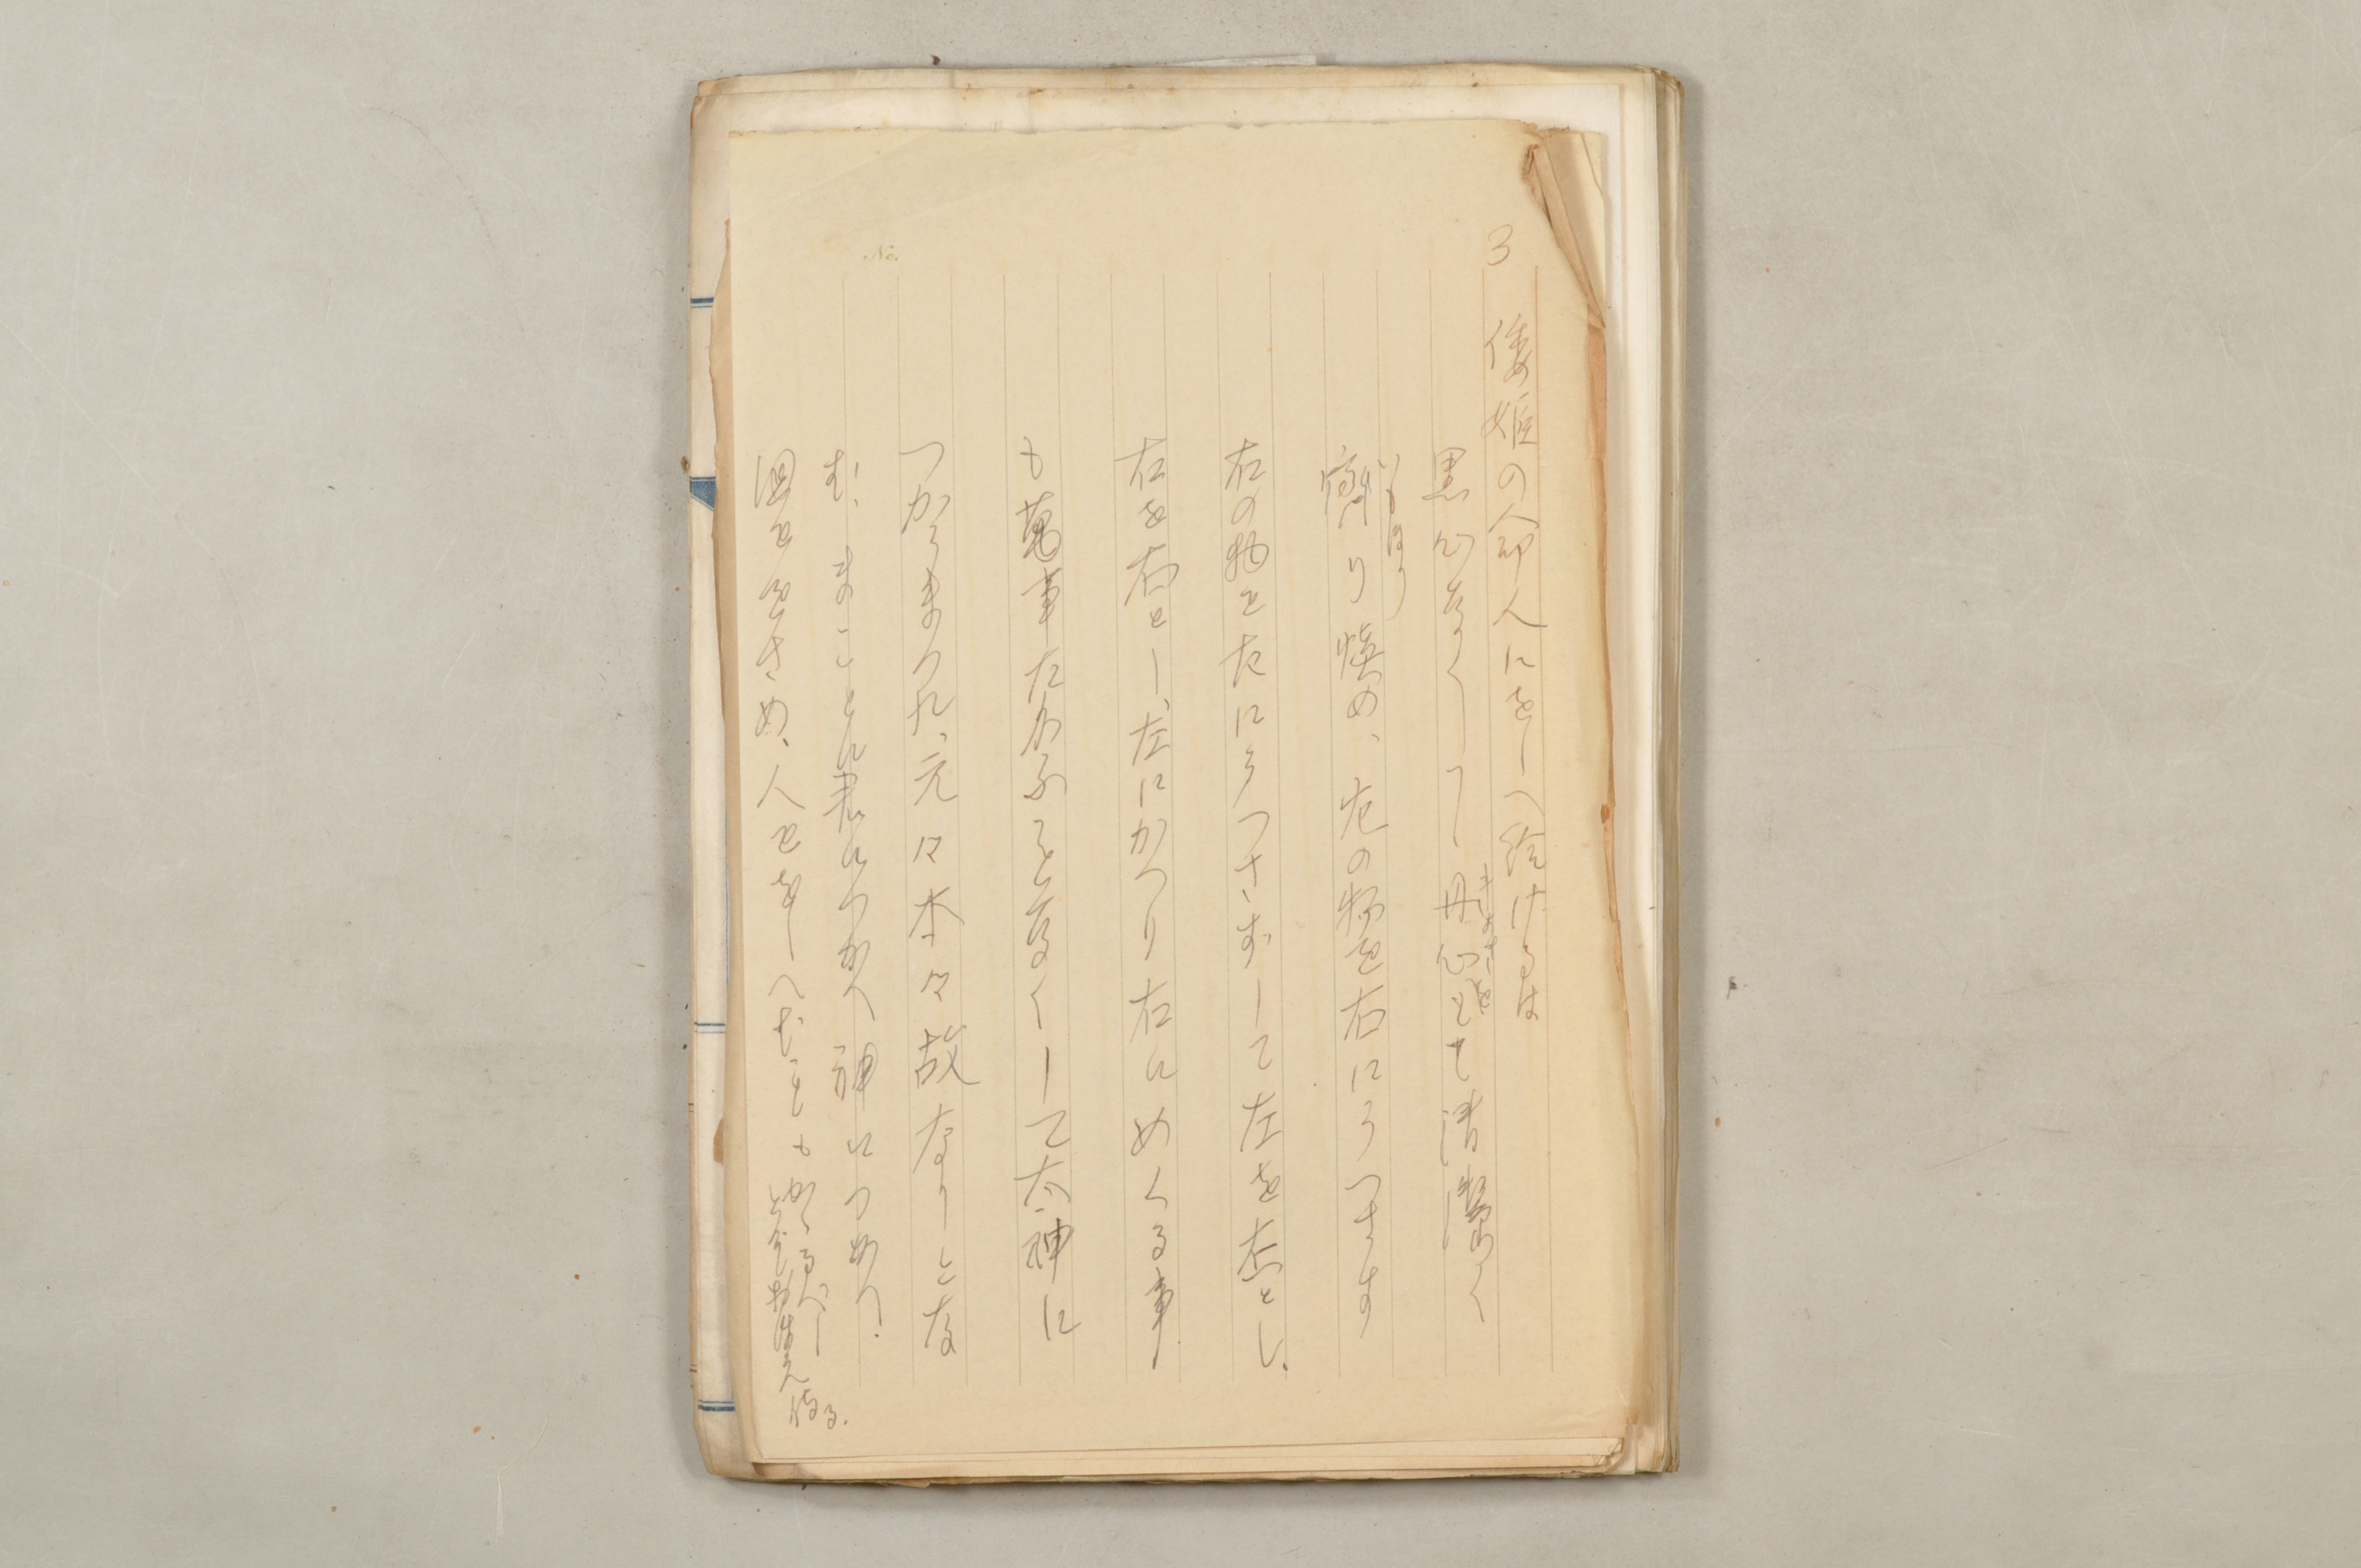 3
倭姫の命人にをしへ給けるは
黒心なくして丹心をもて清潔く
きよきを
齋り慎め、左の物を右にうつさす
いもほり
右の物を左にうつさずして左を左とし、
右を右とし、左にかへり右にめくる事
も萬事たがふこと㐂くして太神に
つかうまつれ、元々本々故なりとな
む、まことに君につかへ神につかへ、
国をおさめ、人ををしへむことも
かゝるべしとぞおぼえ侍る。